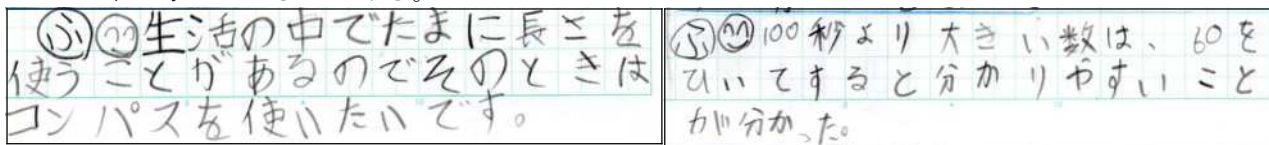 ふ 生活の中でたまに長さを
使うことがあるのでそのときは
コンパスを使いたいです。
ふ 100秒より大きい数は、60を
ひいてすると分かりやすいこと
が分かった。